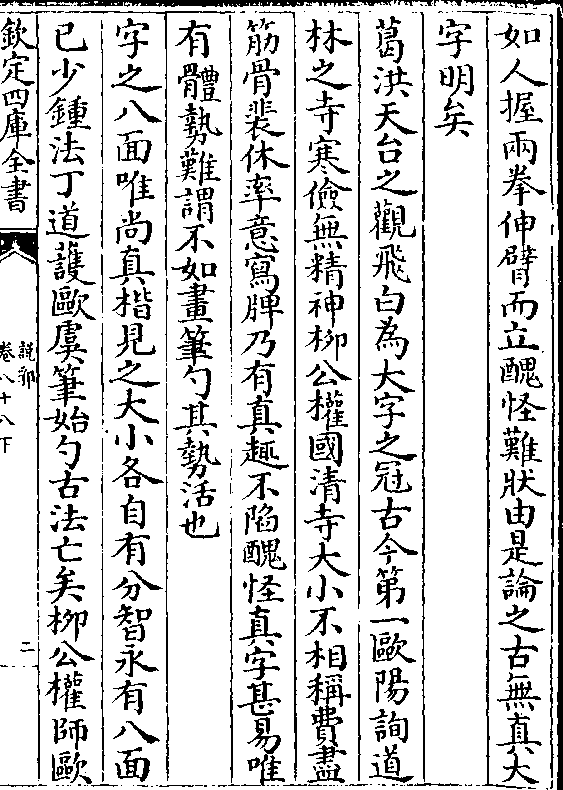 如人握兩拳伸臂而立醜怪難狀由是論之古無真大
字明矣
葛洪天台之觀飛白為大字之冠古今第一歐陽詢道
林之寺寒儉無精神柳公權國清寺大小不相稱費盡
筋骨裴休率意寫牌乃有真趣不陷醜怪真字甚易唯
有體勢難謂不如畫筆勻其勢活也
字之八面唯尚真楷見之大小各自有分智永有八面
已少鍾法丁道護歐虞筆始勻古法亡矣柳公權師歐
欽定四庫全書
說郛
卷八十八下
二